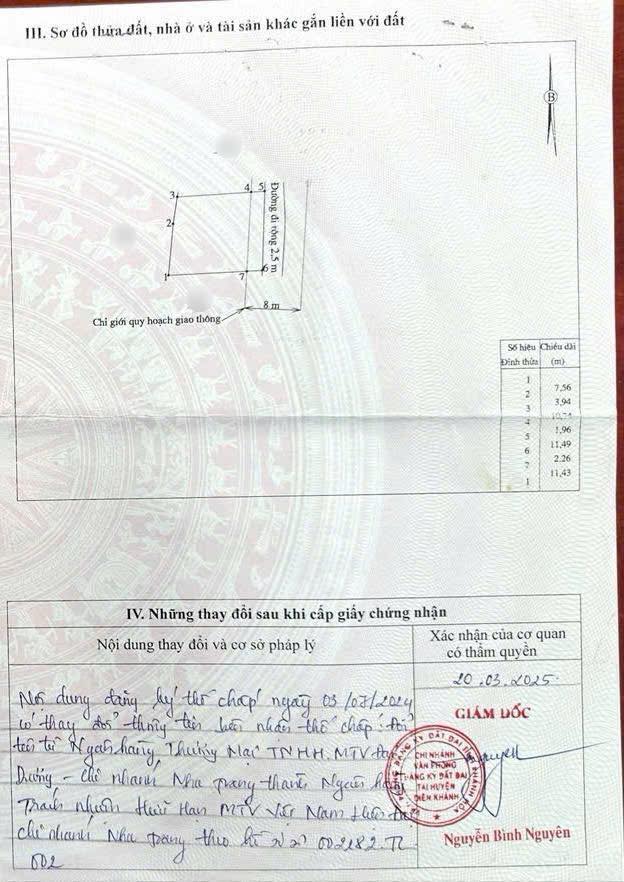 III. Sơ đồ thửa đất, nhà ở và tài sản khác gắn liền với đất
B
3
4
5
2
Đường đi rộng 2,5 m
1
7
6
8 m
Chỉ giới quy hoạch giao thông
Số hiệu Đỉnh thửa
Chiều dài (m)
1
7,56
2
3,94
3
10,74
4
1,96
5
11,49
6
2.26
7
11,43
1
IV. Những thay đổi sau khi cấp giấy chứng nhận
Nội dung thay đổi và cơ sở pháp lý
Xác nhận của cơ quan
có thẩm quyền
Nội dung đăng ký thế chấp ngày 03/07/2024
có thay đổi thông tin bên nhận thế chấp: đổi
tên từ Ngân hàng Thương Mại TNHH MTV
Dương - Chi nhánh Nha Trang thành Ngân hàng
Trách nhiệm Hữu Hạn MTV Việt Nam Hiện đại
chi nhánh Nha Trang theo hồ sơ số 002182.TL
002
20.03.2025
GIÁM ĐỐC
CHI NHÁNH
VĂN PHÒNG
ĐĂNG KÝ ĐẤT ĐAI
TẠI HUYỆN
DIÊN KHÁNH
Nguyễn Bình Nguyên